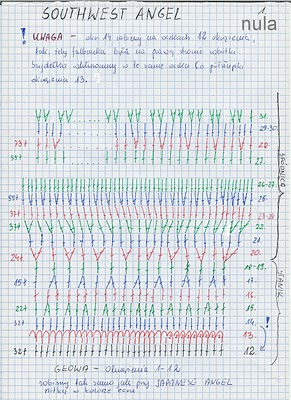 SOUTHWEST ANGEL 1.
nula
! UWAGA - okr 14 robimy na oczkach 12 okrążenia,
tak, żeby falbanka była na prawej stronie robótki
Szydełko wbijamy w te same oczka co półsłupki
okrążenia 13.
31.
29-30
33t 28.
55t 27.
SPÓDNICA
26-27.
55t 25.
37t 23-24
37t 22.
21.
24t 20.
18-19.
15t 17.
16.
22t 15.
STANIK
32t 14. !
13.
32t 12.
GŁOWA - Okrążenia 1-12
robimy tak samo jak przy JAPANESE ANGEL
nitką w kolorze ecru